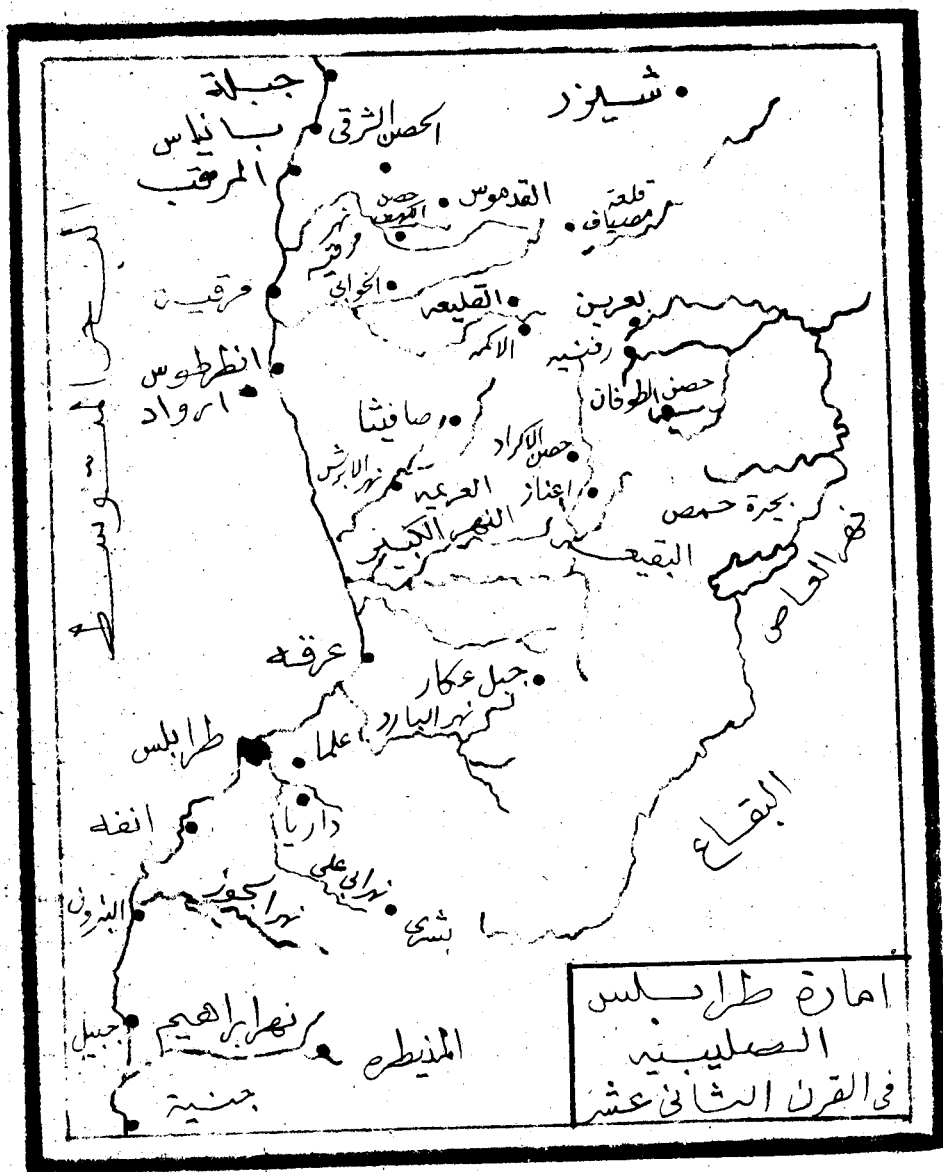 جبلة
شيزر
بانياس
الحصن الشرقى
المرقب
القدموس
قلعة
مصياف
حصن
الكهف
نهر
مرقيه
مرقية
الخوابى
القليعه
الاكمه
بعرين
رفنيه
انطرطوس
ارواد
حصن الطوفان
صافيثا
حصن الاكراد
نهر الابرش
العريمه
اعناز
بحرة حمص
النهر الكبير
البقيعه
نهر العاص
البحر المتوسط
عرقه
جبل عكار
نهر البارد
طرابلس
علما
داريا
انفه
البقاع
نهر ابى على
نهر الجوز
البترون
بشرى
جبيل
نهر ابراهيم
المنيطره
جنية
امارة طرابلس
الصليبيه
فى القرن الثانى عشر